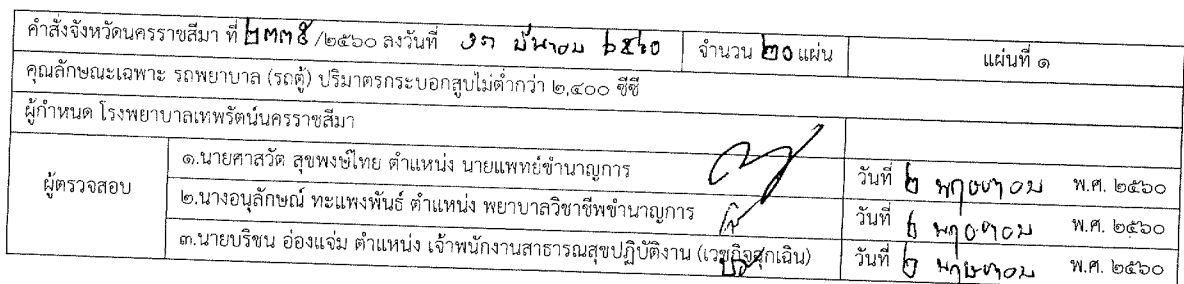 คำสั่งจังหวัดนครราชสีมา ที่ ๒๓๓๕/๒๕๖๐ ลงวันที่ ๓๑ มีนาคม ๒๕๖๐ จำนวน ๒๐ แผ่น แผ่นที่ ๑
คุณลักษณะเฉพาะ รถพยาบาล (รถตู้) ปริมาตรกระบอกสูบไม่ต่ำกว่า ๒,๔๐๐ ซีซี
ผู้กำหนด โรงพยาบาลเทพรัตน์นครราชสีมา
ผู้ตรวจสอบ
๑.นายศาสวัต สุขพงษ์ไทย ตำแหน่ง นายแพทย์ชำนาญการ วันที่ ๒ พฤษภาคม พ.ศ. ๒๕๖๐
๒.นางอนุลักษณ์ ทะแพงพันธ์ ตำแหน่ง พยาบาลวิชาชีพชำนาญการ วันที่ ๒ พฤษภาคม พ.ศ. ๒๕๖๐
๓.นายบริชน อ่องแจ่ม ตำแหน่ง เจ้าพนักงานสาธารณสุขปฏิบัติงาน (เวชกิจฉุกเฉิน) วันที่ ๒ พฤษภาคม พ.ศ. ๒๕๖๐